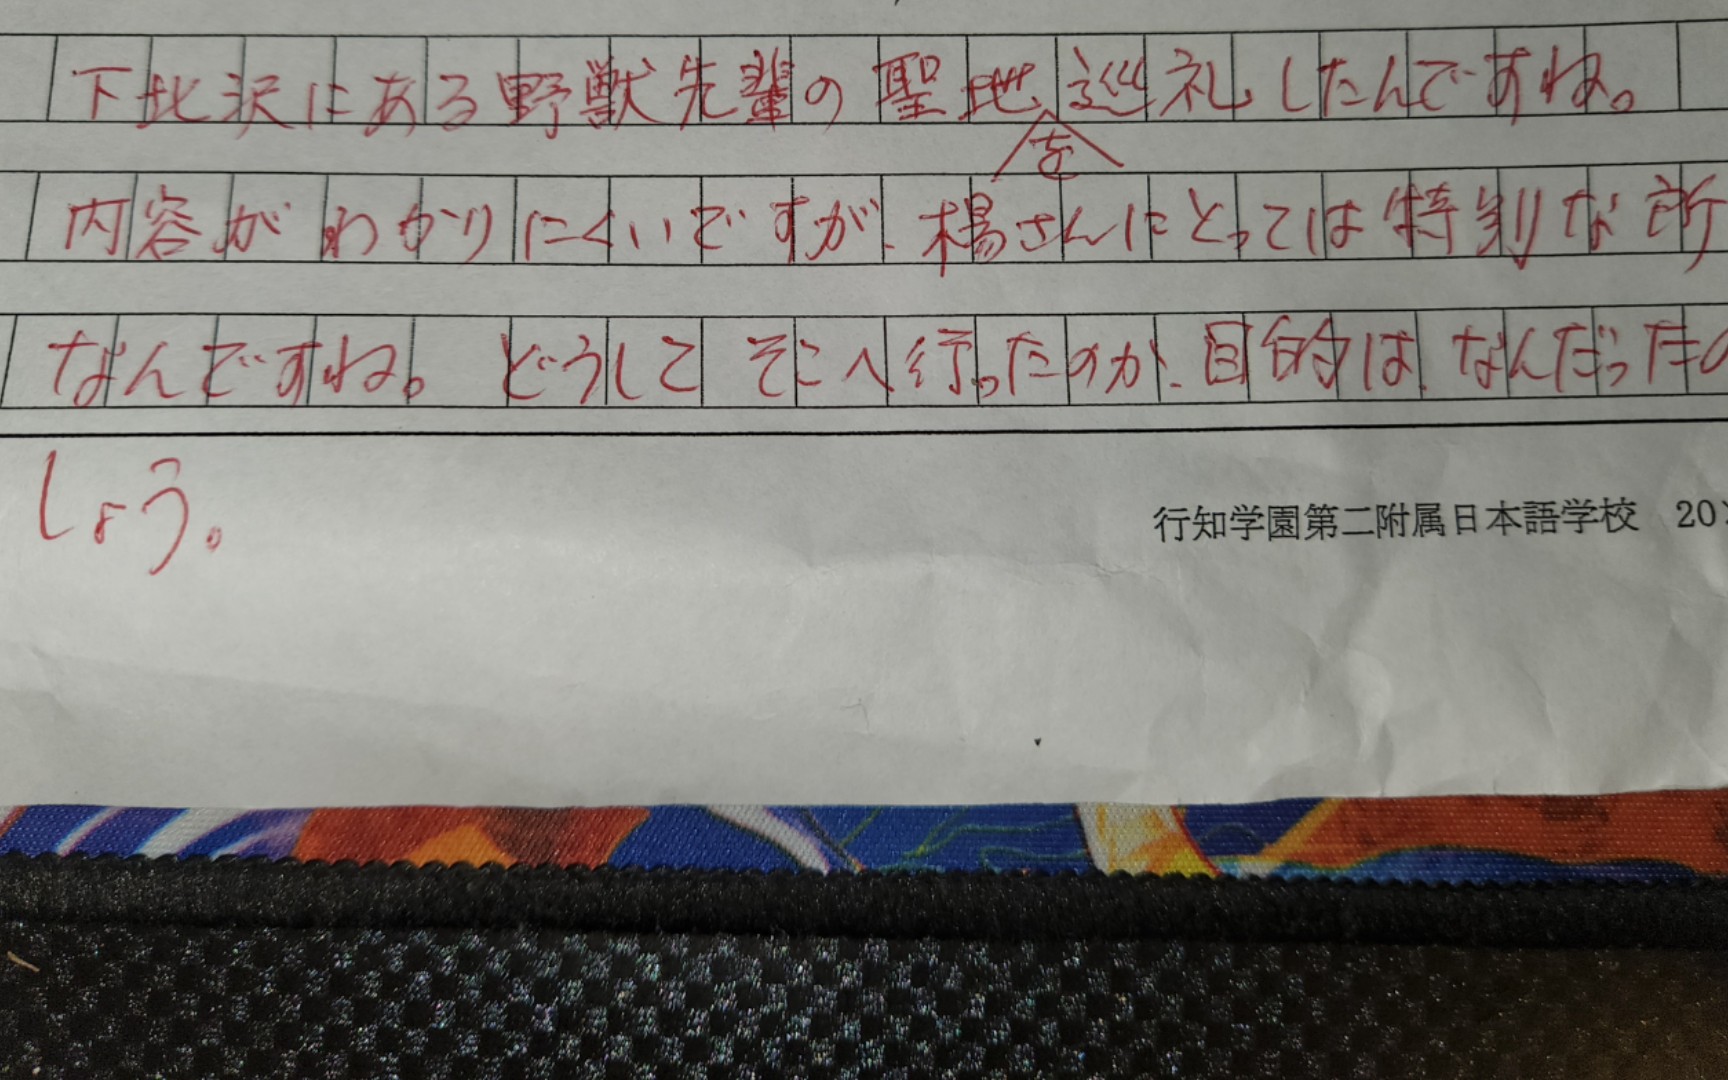 下北沢にある野獣先輩の聖地を巡礼したんですね。
内容がわかりにくいですが、楊さんにとっては特別な所
なんですね。どうしてそこへ行ったのか、目的は、なんだったの
しょう。
行知学園第二附属日本語学校 20